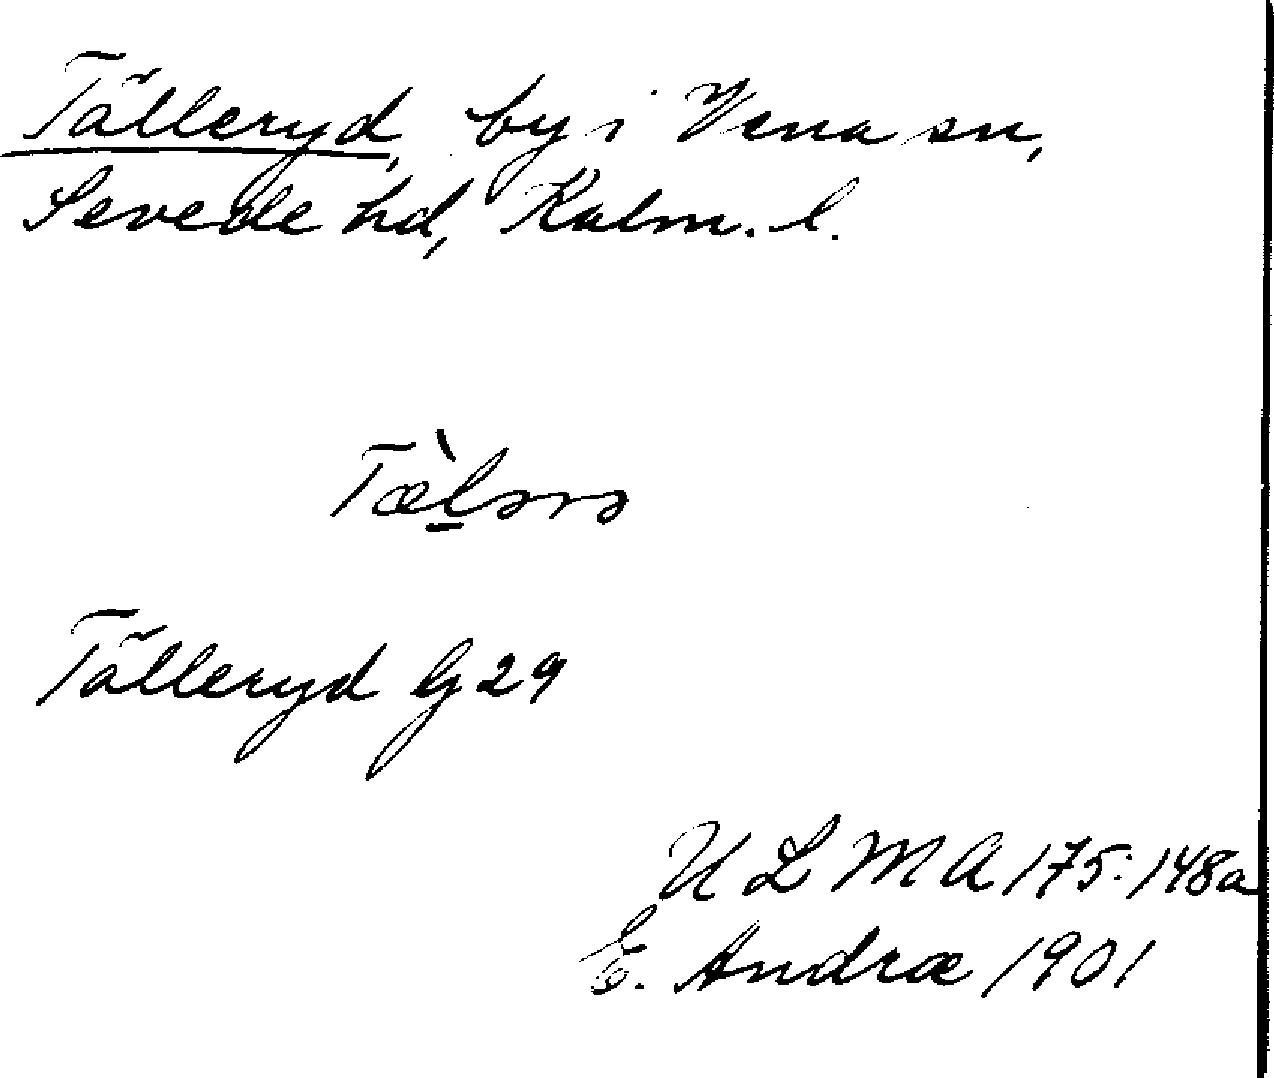 Tälleryd, by i Vena sn,
Sevede hd, Kalm. l.
Tälleryd G 29
U L M A 175:148a
E. Andræ 1901